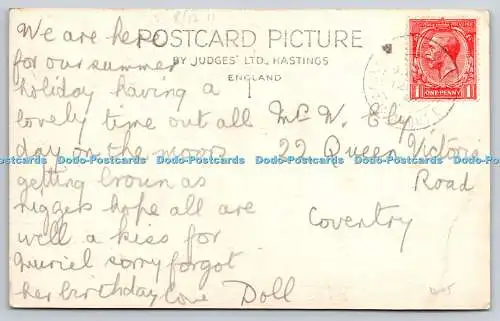 We are here
for our summer
holiday having a
lovely time out all
day on the moors
getting brown as
niggers hope all are
well a kiss for
Muriel sorry forgot
her birthday love Doll
POSTCARD PICTURE
BY JUDGES' LTD., HASTINGS
ENGLAND
Mr W. Ely
22 Queen Victoria
Road
Coventry
ONE PENNY
1 1
Dodo-Postcards Dodo-Postcards Dodo-Postcards Dodo-Postcards Dodo-Postcards Dodo-Postcards